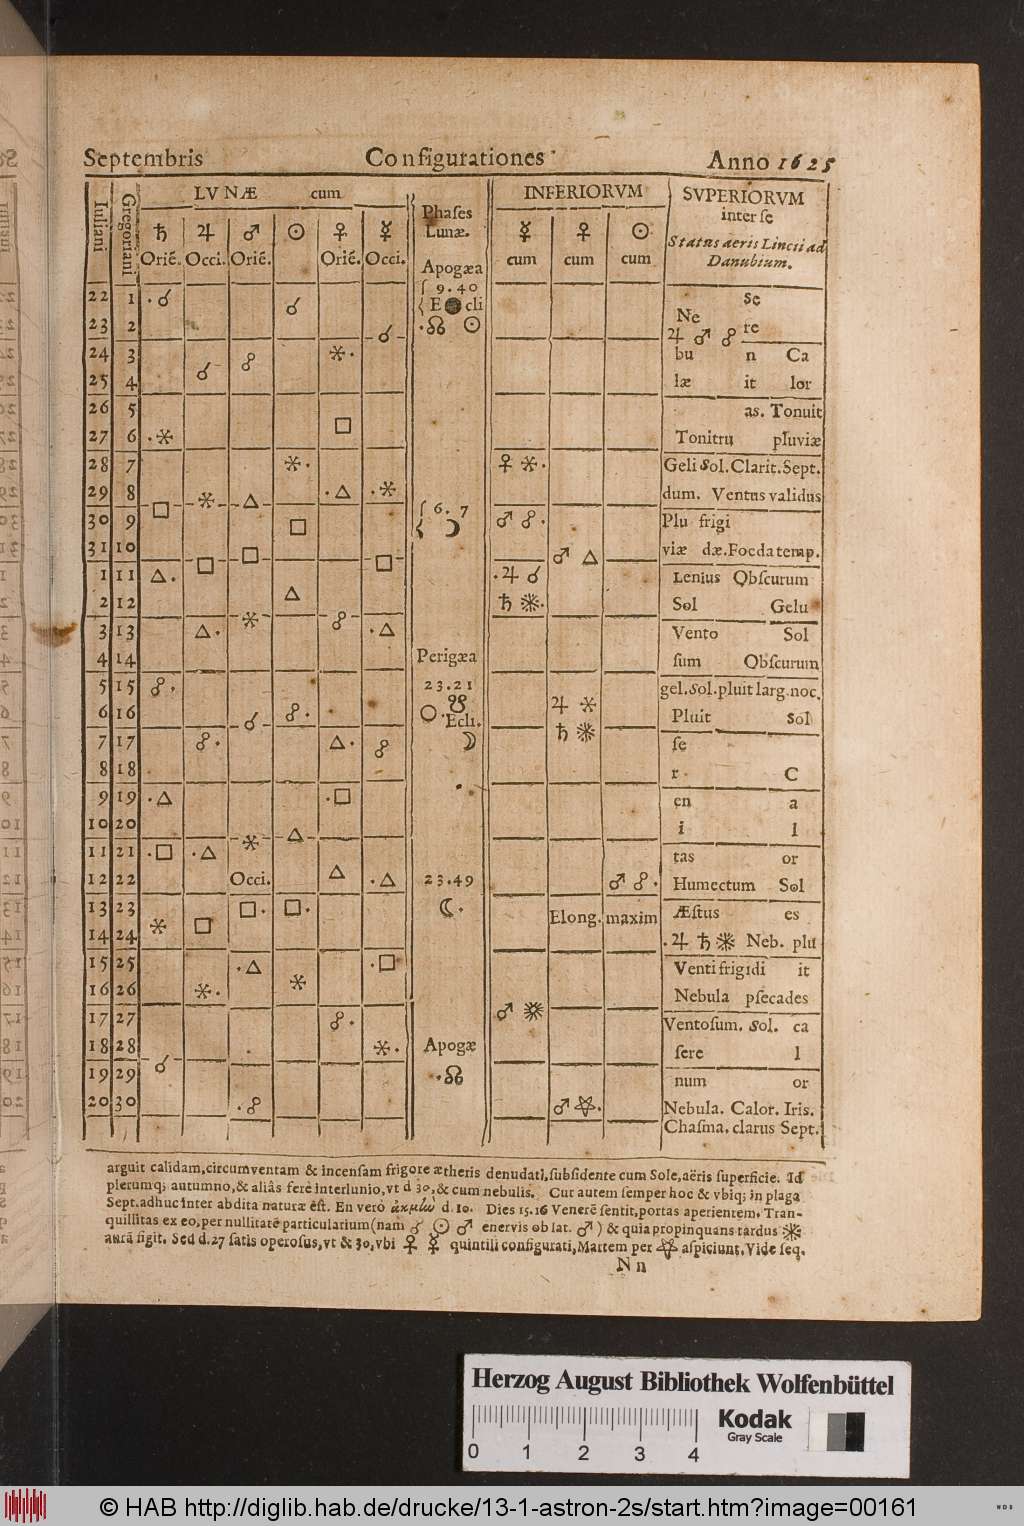 Septembris Configurationes Anno 1625
LVNÆ cum
INFERIORVM
SVPERIORVM
inter se
Status aeris Lincii ad
Danubium.
Iuliani
Gregoriani
♄ ♃ ♂ ☉ ♀ ☿
Oriē. Occi. Oriē. Oriē. Occi.
Phases
Lunæ.
☿ ♀ ☉
cum cum cum
Apogæa
22 1 . ☌ ☌ 9. 40 Se
E cli Ne
23 2 ☌ . ☊ ☉ ♃ ♂ ☍ re
24 3 ☍ ⚹. bu n Ca
25 4 ☌ læ it lor
26 5 □ as. Tonuit
27 6 .⚹ Tonitru pluviæ
28 7 ⚹. ♀ ⚹. Geli Sol. Clarit. Sept.
29 8 □ ⚹ △ .△ .⚹ dum. Ventus validus
6. 7
30 9 □ ☽ ♂ ☍. Plu frigi
31 10 □ □ □ ♂ △ viæ dæ. Fœda temp.
1 11 △. .♃ ☌ Lenius Obscurum
2 12 △ ♄ Sol Gelu
3 13 △. ⚹ ☍ .△ Vento Sol
4 14 Perigæa sum Obscurum
5 15 ☍. 23. 21 gel. Sol. pluit larg. noc.
♃ ⚹
6 16 ☌ ☍. ☉. ☋ Pluit Sol
Ecli.
7 17 ☍. △. ☍ ☽ ♄ se
8 18 r C
9 19 .△ .□ en a
10 20 i l
11 21 .□ .△ ⚹ △ tas or
12 22 Occi. △ .△ 23. 49 ♂ ☍. Humectum Sol
13 23 □. □. ☾. Elong. maxim Æstus es
14 24 ⚹ □ .♃ ♄ Neb. plu
15 25 .△ .□ Venti frigidi it
16 26 ⚹. ⚹ Nebula psecades
17 27 ☍. ♂ Ventosum. Sol. ca
18 28 ⚹. Apogæ sere l
19 29 ☌ .☊ num or
20 30 .☍ ♂ . Nebula. Calor. Iris.
Chasma. clarus Sept.
arguit calidam, circumventam & incensam frigore ætheris denudati, subsidente cum Sole, aëris superficie. Id
plerumq; autumno, & aliâs ferè interlunio, vt d 30, & cum nebulis. Cur autem semper hoc & vbiq; in plaga
Sept. adhuc inter abdita naturæ est. En verò ἀκμὴν d. 10. Dies 15. 16 Venerē sentit, portas aperientem. Tran-
quillitas ex eo, per nullitatē particularium (nam ☌ ☉ ♂ enervis ob lat. ♂ ) & quia propinquans tardus
aurā figit. Sed d. 27 satis operosus, vt & 30, vbi ♀ ☿ quintili configurati, Martem per aspiciunt. Vide seq.
N n
Herzog August Bibliothek Wolfenbüttel
Kodak
Gray Scale
0 1 2 3 4
© HAB http://diglib.hab.de/drucke/13-1-astron-2s/start.htm?image=00161